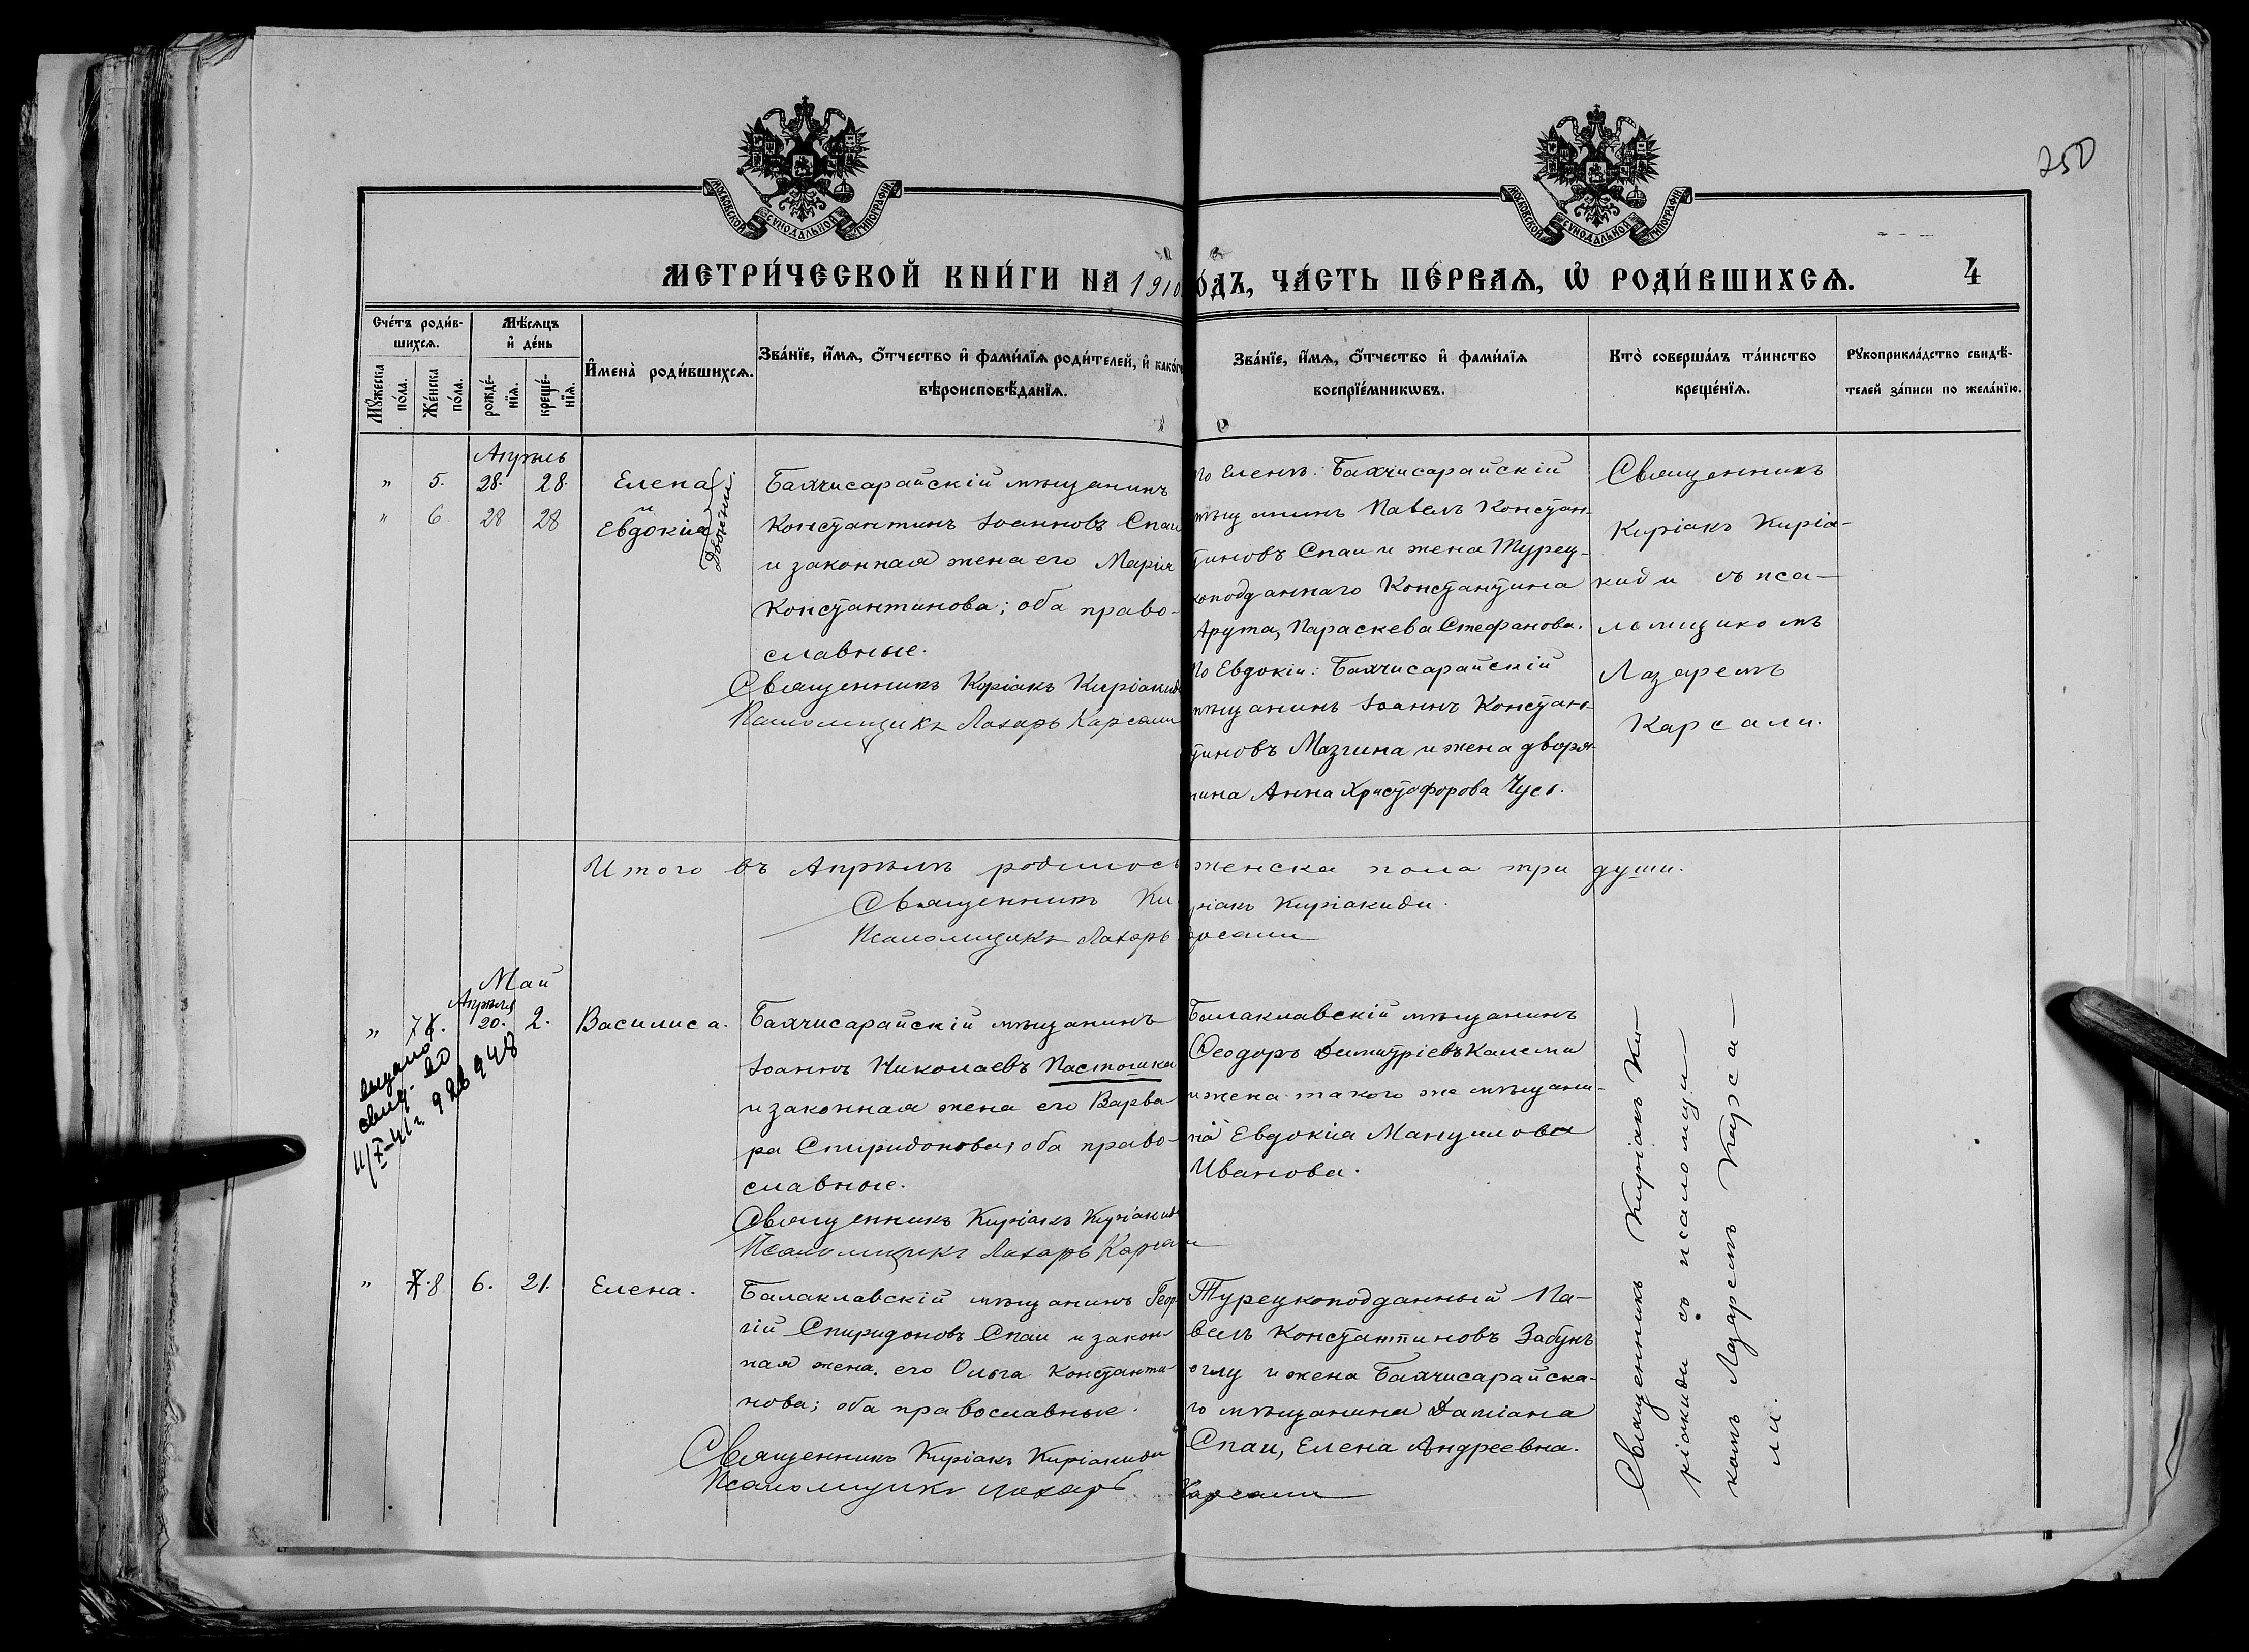 250
МОСКОВСКОЙ СѴНОДАЛЬНОЙ ТИПОГРАФІИ
МОСКОВСКОЙ СѴНОДАЛЬНОЙ ТИПОГРАФІИ
МЕТРИ́ЧЕСКОЙ КНИ́ГИ НА 1910
О́ДЪ, ЧА́СТЬ ПЕ́РВАѦ, Ѡ҆ РОДИ́ВШИХСѦ. 4
Сче́тъ роди́в-
шихсѧ.
Мꙋ́жеска
по́ла.
Же́нска
по́ла.
Мѣ́сѧцъ
и҆ де́нь
рожде́-
нїѧ.
креще́-
нїѧ.
И҆мена̀ роди́вшихсѧ.
Зва́нїе, и҆́мѧ, ѻ҆́тчество и҆ фами́лїѧ роди́телей, и҆ како́гѡ
вѣроисповѣ́данїѧ.
Зва́нїе, и҆́мѧ, ѻ҆́тчество и҆ фами́лїѧ
воспрїе́мникѡвъ.
Кто̀ соверша́лъ та́инство
креще́нїѧ.
Рꙋкоприкла́дство свидѣ́-
телей за́писи по жела́нїю.
Апрѣль
" 5. 28. 28. Елена
и
" 6. 28 28 Евдокія
Двойни
Бахчисарайскій мѣщанинъ
Константинъ Іоанновъ Спаи
и законная жена его Марія
Константинова; оба право-
славные.
Священникъ Киріакъ Киріакиди
Псаломщикъ Лазарь Карсали
По Еленѣ: Бахчисарайскій
мѣщанинъ Павелъ Констан-
тиновъ Спаи и жена Турец-
коподданнаго Константина
Арута, Параскева Стефанова.
По Евдокіи: Бахчисарайскій
мѣщанинъ Іоаннъ Констан-
тиновъ Мазгина и жена дворя-
нина Анна Христофорова Чусь.
Священникъ
Киріакъ Киріа-
киди съ пса-
ломщикомъ
Лазаремъ
Карсали.
Итого въ Апрѣлѣ родилось женска пола три души.
Священникъ Киріакъ Киріакиди.
Псаломщикъ Лазарь Карсали
Май
Апрѣля
" 7. 20. 2. Василиса.
выдано
свид. 
11/X-41г. 
Бахчисарайскій мѣщанинъ
Іоаннъ Николаевъ Пастошка
и законная жена его Варва-
ра Спиридонова; оба право-
славные.
Священникъ Киріакъ Киріакиди
Псаломщикъ Лазарь Карсали
Балаклавскій мѣщанинъ
Ѳеодоръ Димитріевъ Калеми
и жена такого же мѣщани-
на Евдокія Мануилова
Иванова.
" 8 6. 21. Елена.
Балаклавскій мѣщанинъ Геор-
гій Спиридоновъ Спаи и закон-
ная жена его Ольга Константи-
нова; оба православные.
Священникъ Киріакъ Киріакиди
Псаломщикъ Лазарь Карсали
Турецкоподданный Па-
велъ Константиновъ Забунъ
оглу и жена Бахчисарайска-
го мѣщанина Даміана
Спаи, Елена Андреевна.
Священникъ Киріакъ Ки-
ріакиди съ псаломщи-
комъ Лазаремъ Карса-
ли.